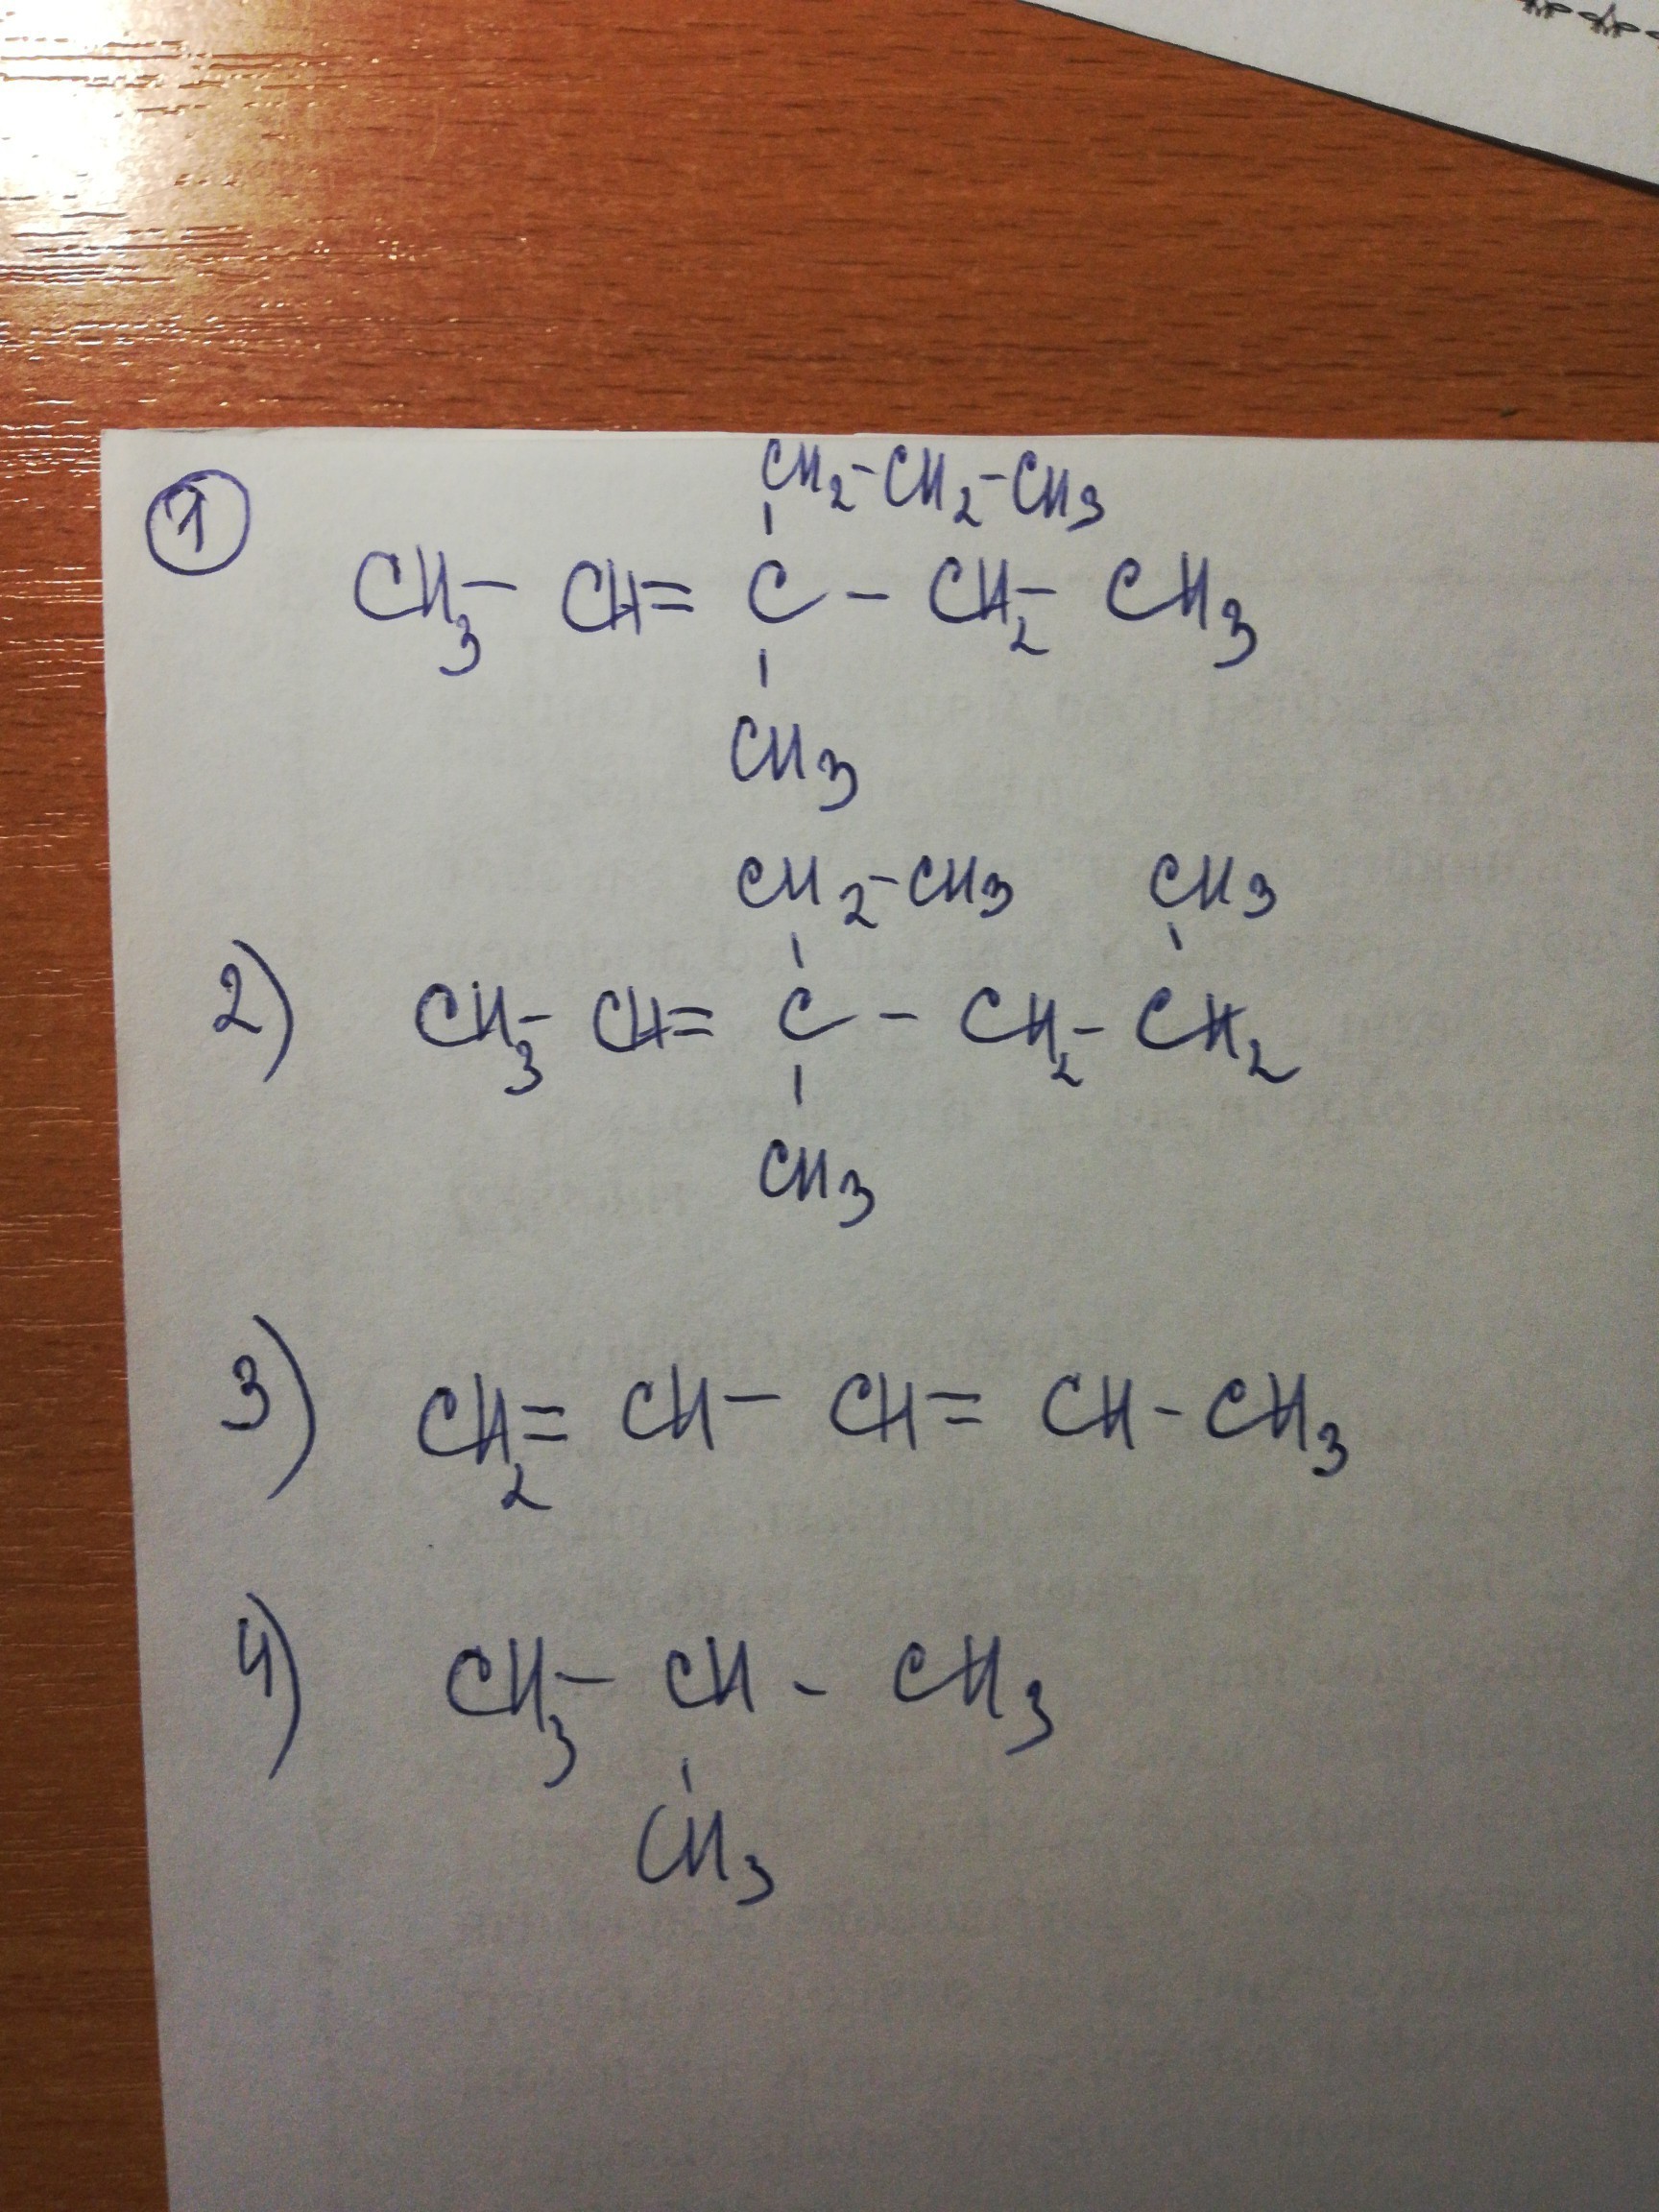 CH₂-CH₂-CH₃
1 CH₃- CH= C - CH₂- CH₃
CH₃
CH₂-CH₃ CH₃
2) CH₃- CH= C - CH₂- CH₂
CH₃
3) CH₂= CH- CH= CH-CH₃
4) CH₃- CH - CH₃
CH₃